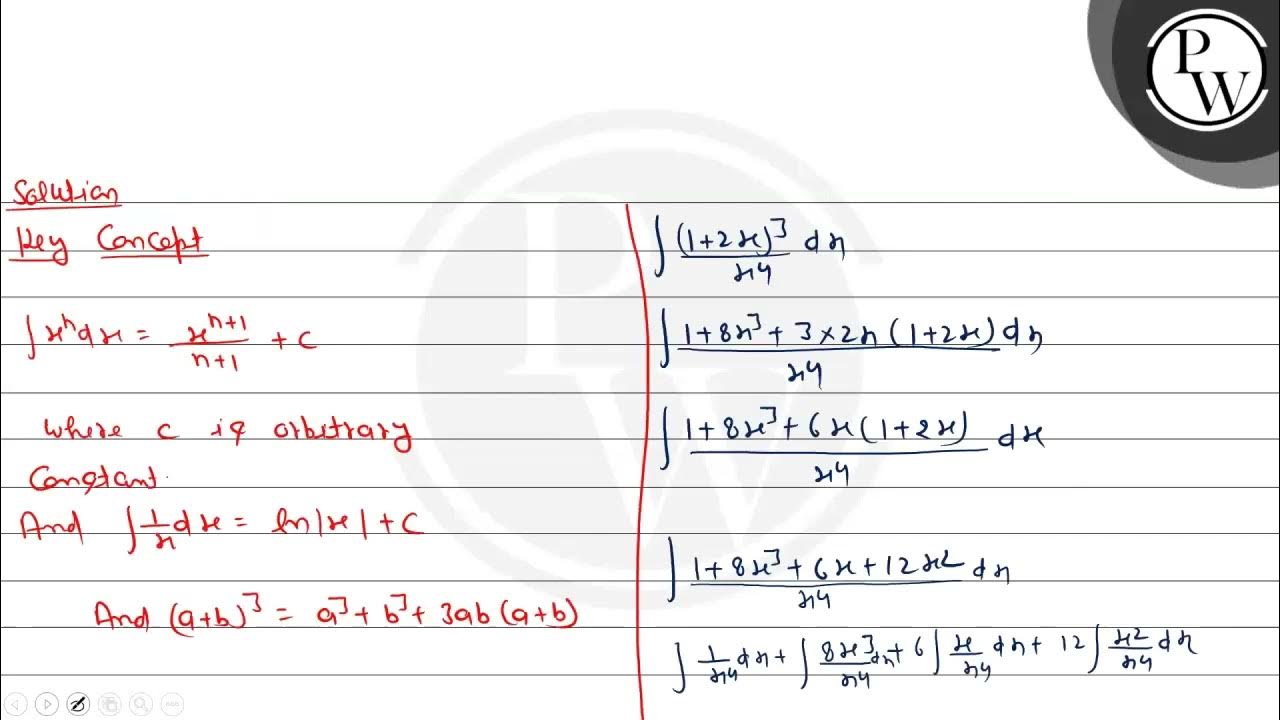 PW
Solution
Key Concept
∫xⁿdx = xⁿ⁺¹/n+1 + c
where c is arbitrary
Constant.
And ∫1/x dx = ln|x| + c
And (a+b)³ = a³ + b³ + 3ab (a+b)
∫(1+2x)³/x⁴ dx
∫1+8x³+3×2x(1+2x)/x⁴ dx
∫1+8x³+6x(1+2x)/x⁴ dx
∫1+8x³+6x+12x²/x⁴ dx
∫1/x⁴ dx + ∫8x³/x⁴ dx + 6∫x/x⁴ dx + 12∫x²/x⁴ dx